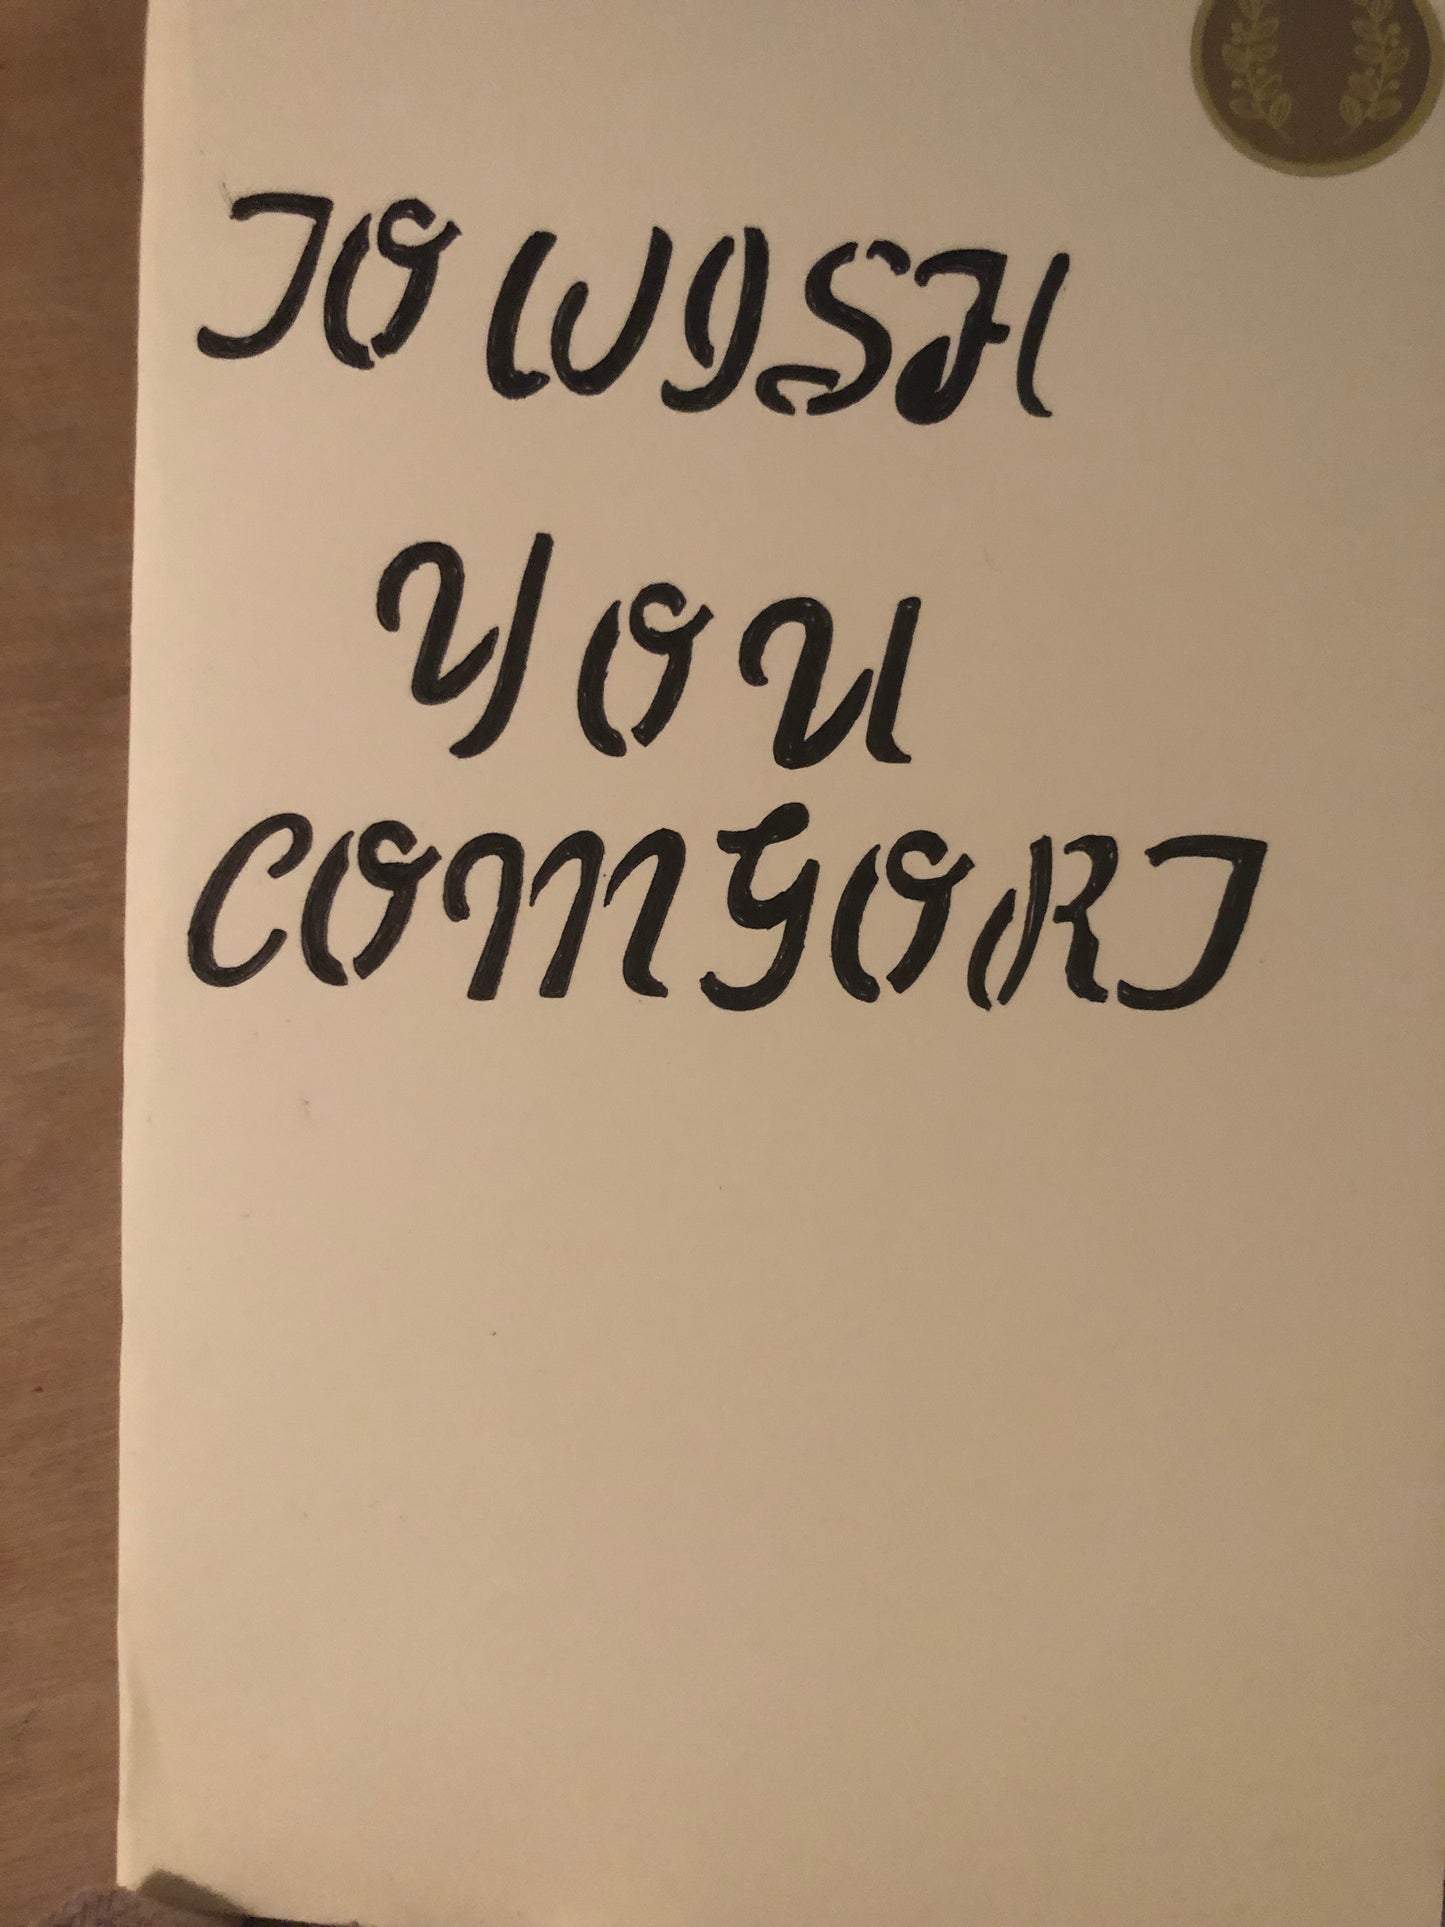 TO WISH
YOU
COMFORT